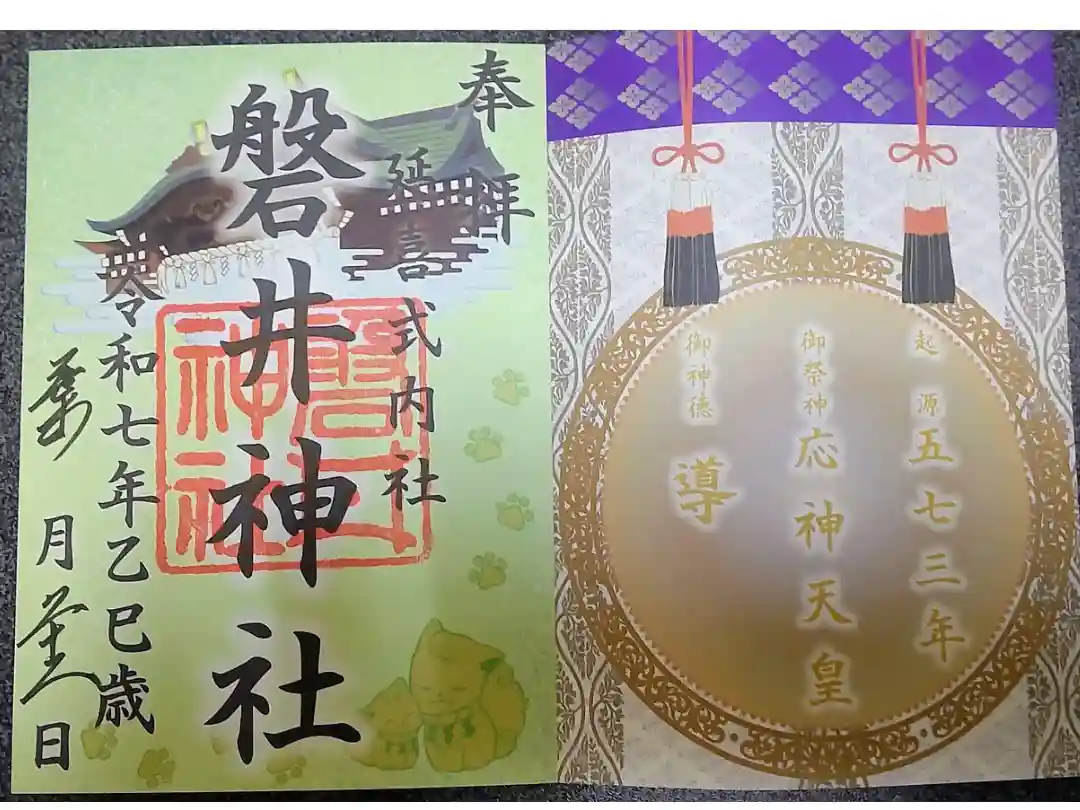 起源五七三年
御祭神応神天皇
御神徳導
奉拝
延喜式内社
磐井神社
磐井神社
令和七年乙巳歳
月 日